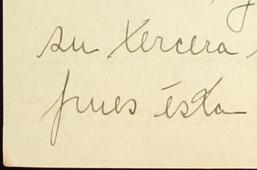 su tercera
pues ésta